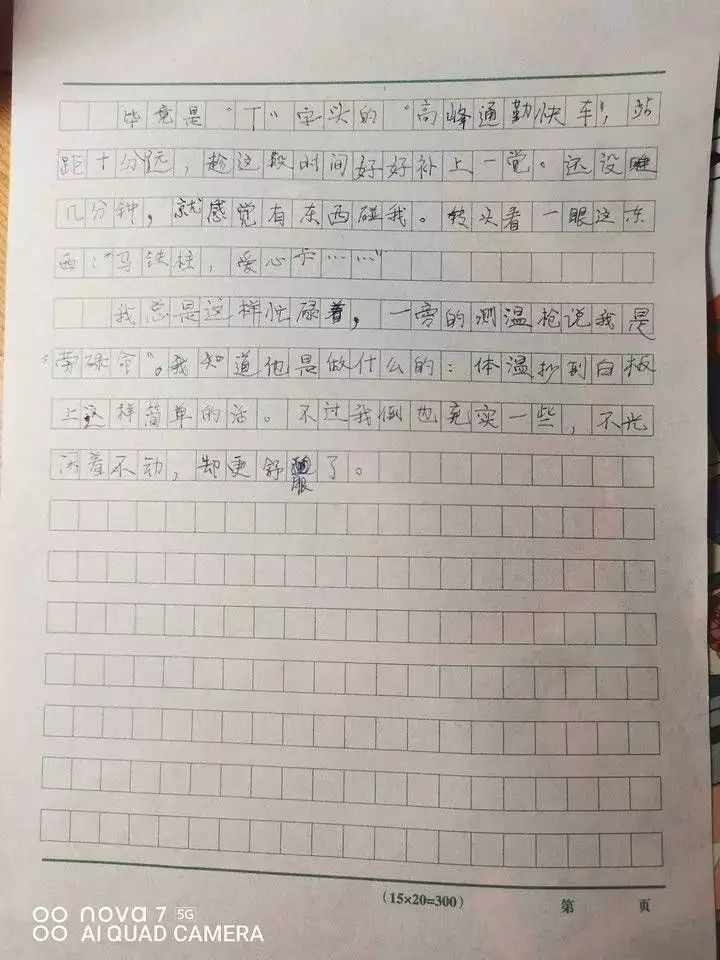 毕竟是“丁”字头的“高峰通勤快车”，站
距十分远，趁这段时间好好补上一觉。还没睡
几分钟，就感觉有东西碰我。转头看一眼这东
西：“马铁柱，爱心卡……”
我总是这样忙碌着，一旁的测温枪说我是
“劳碌命”。我知道他是做什么的：体温抄到白板
上这样简单的活。不过我倒也充实一些，不光
闲着不动，却更舒服了。
(15×20=300) 第 页
nova 7 5G
AI QUAD CAMERA